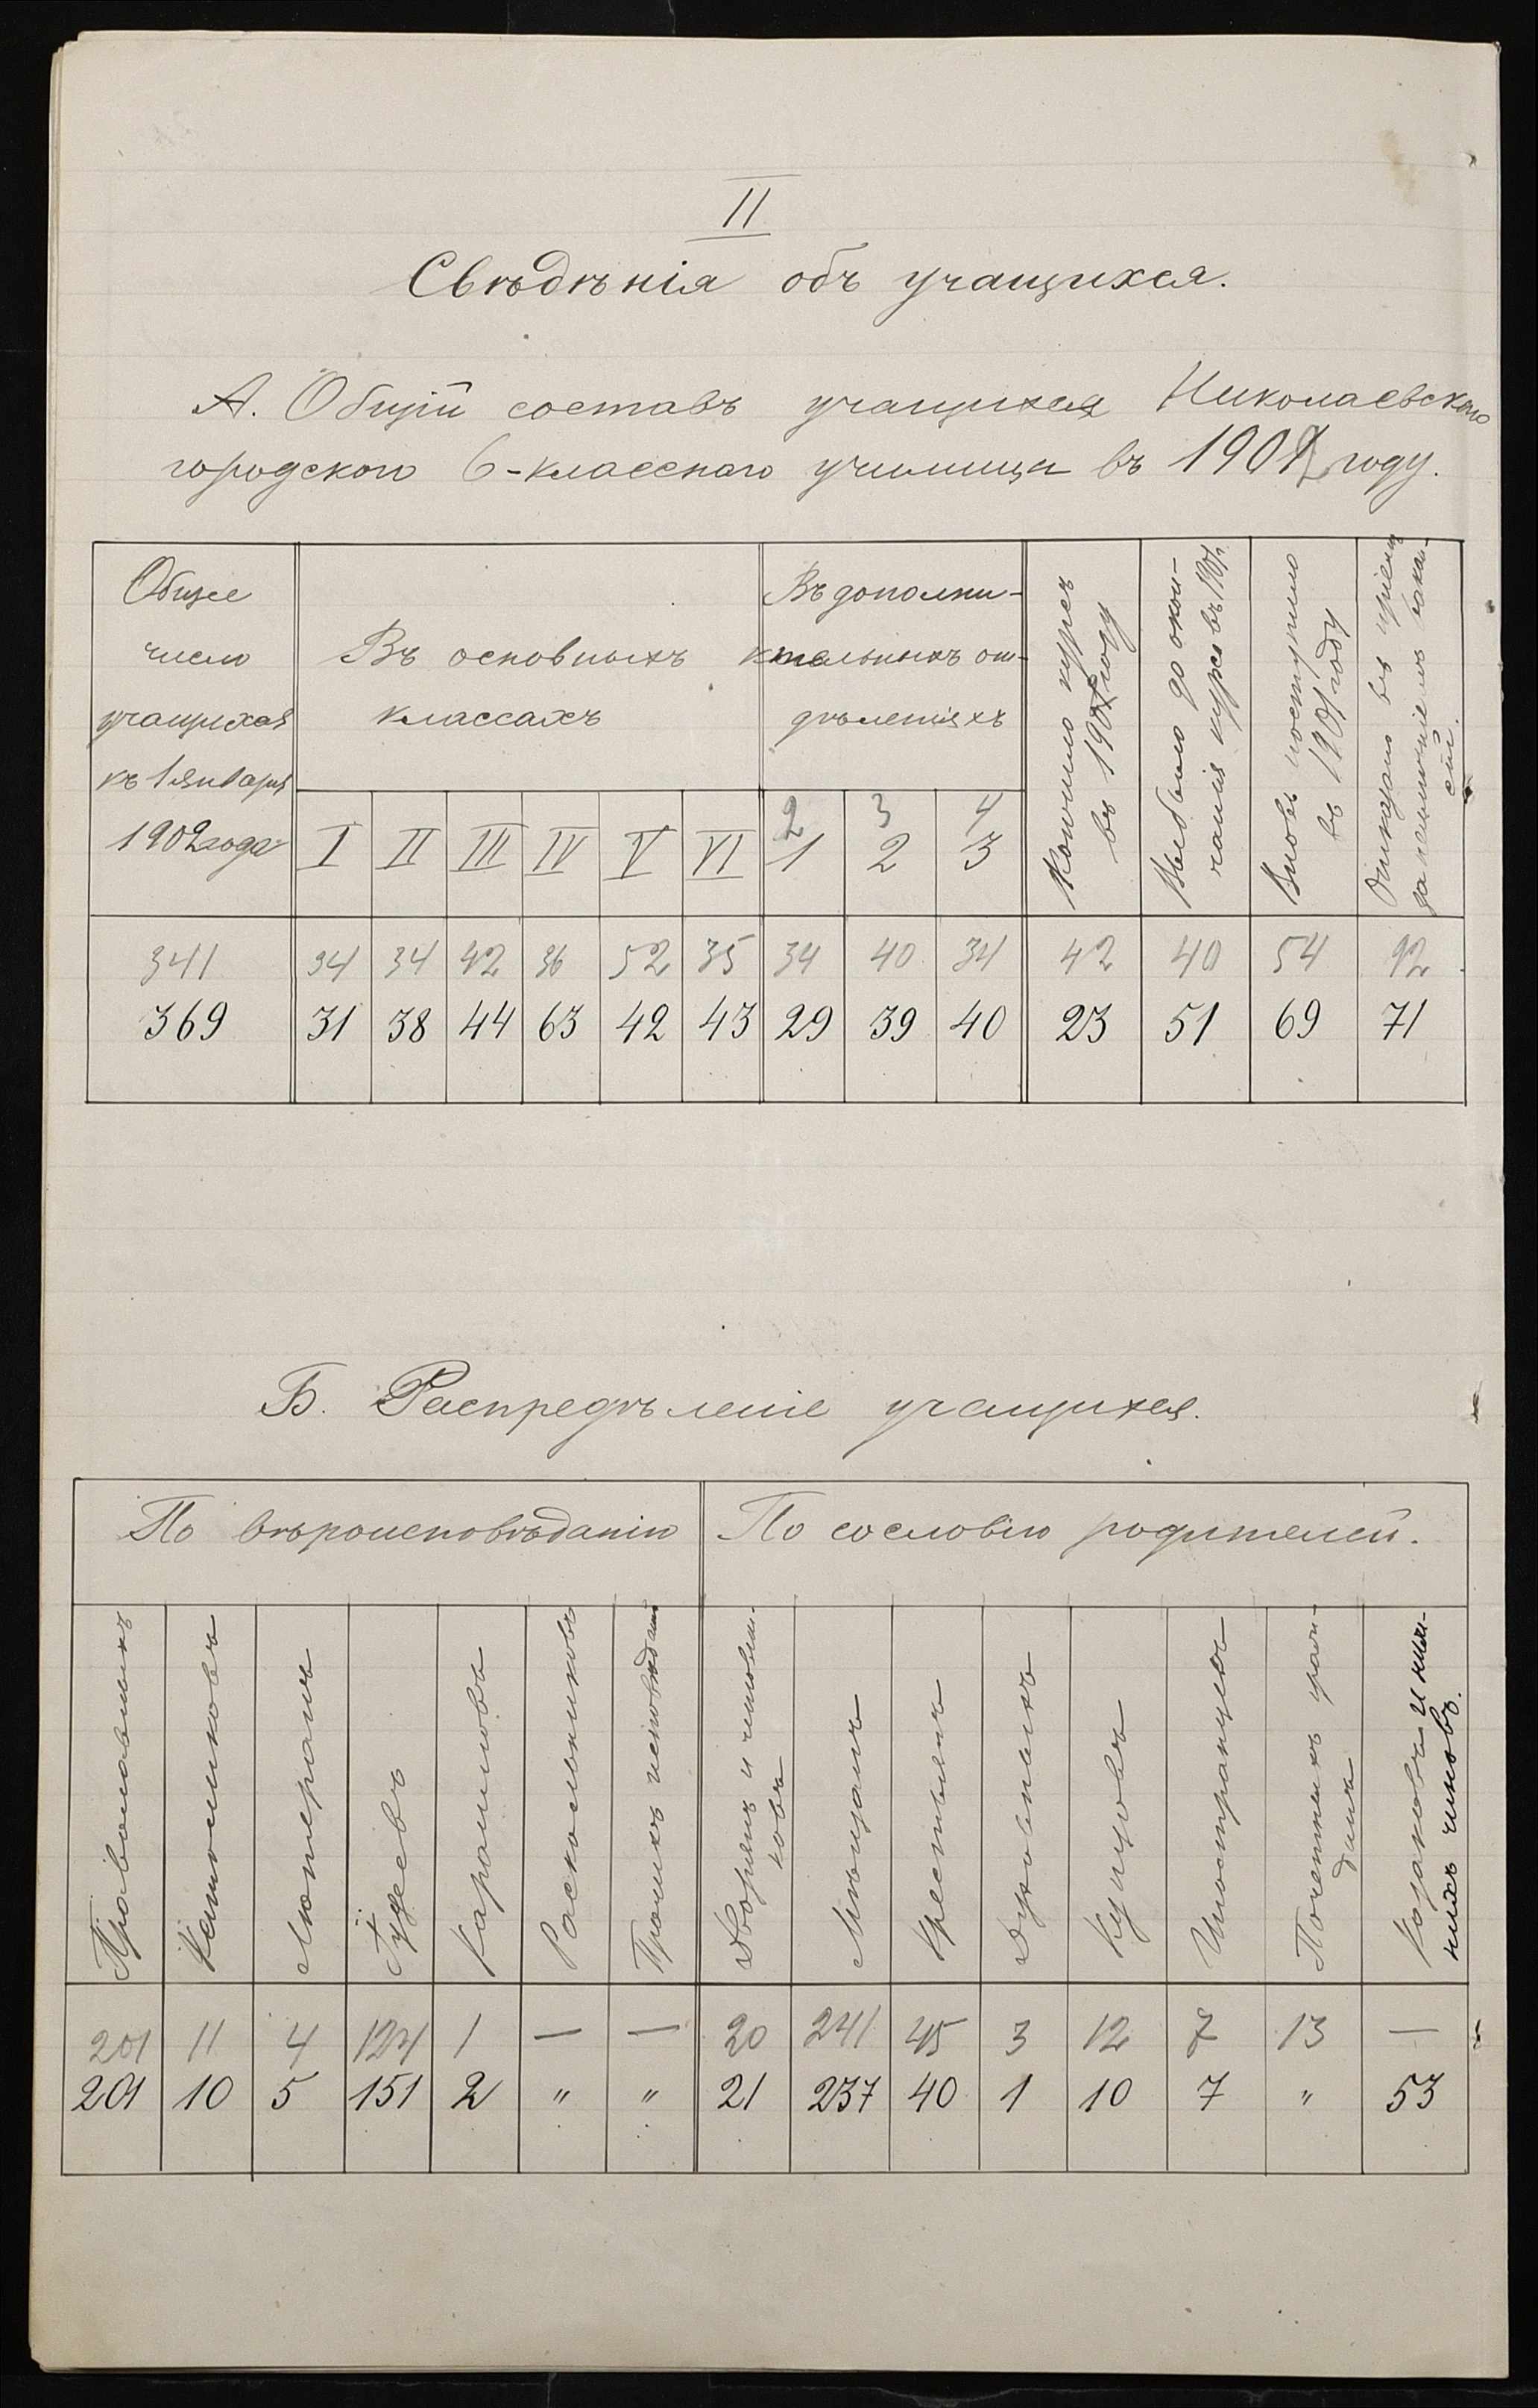 II
Свѣдѣнія объ учащихся.
А. Общій составъ учащихся Николаевскаго
городского 6-класснаго училища въ 1901 году.
Общее
число
учащихся
къ 1 января
1902 года
Въ основныхъ
классахъ
Въ дополни-
тельныхъ от-
дѣленіяхъ
Кончило курсъ
въ 1901 году
Выбыло до окон-
чанія курса въ 1901 г.
Вновь поступило
въ 1901 году
Отказано въ пріемѣ
за неимѣніемъ вакан-
сій.
2 3 4
I II III IV V VI 1 2 3
341 34 34 42 36 52 35 34 40 34 42 40 54 92
369 31 38 44 63 42 43 29 39 40 23 51 69 71
Б. Распредѣленіе учащихся.
По вѣроисповѣданію По сословію родителей.
Православныхъ
Католиковъ
Лютеранъ
Іудеевъ
Караимовъ
Раскольниковъ
Прочихъ исповѣданій
Дворянъ и чиновни-
ковъ
Мѣщанъ
Крестьянъ
Духовныхъ
Купцовъ
Иностранцевъ
Почетныхъ граж-
данъ
Козаковъ и ниж-
нихъ чиновъ.
201 11 4 124 1 — — 20 241 45 3 12 7 13 —
201 10 5 151 2 " " 21 237 40 1 10 7 " 53